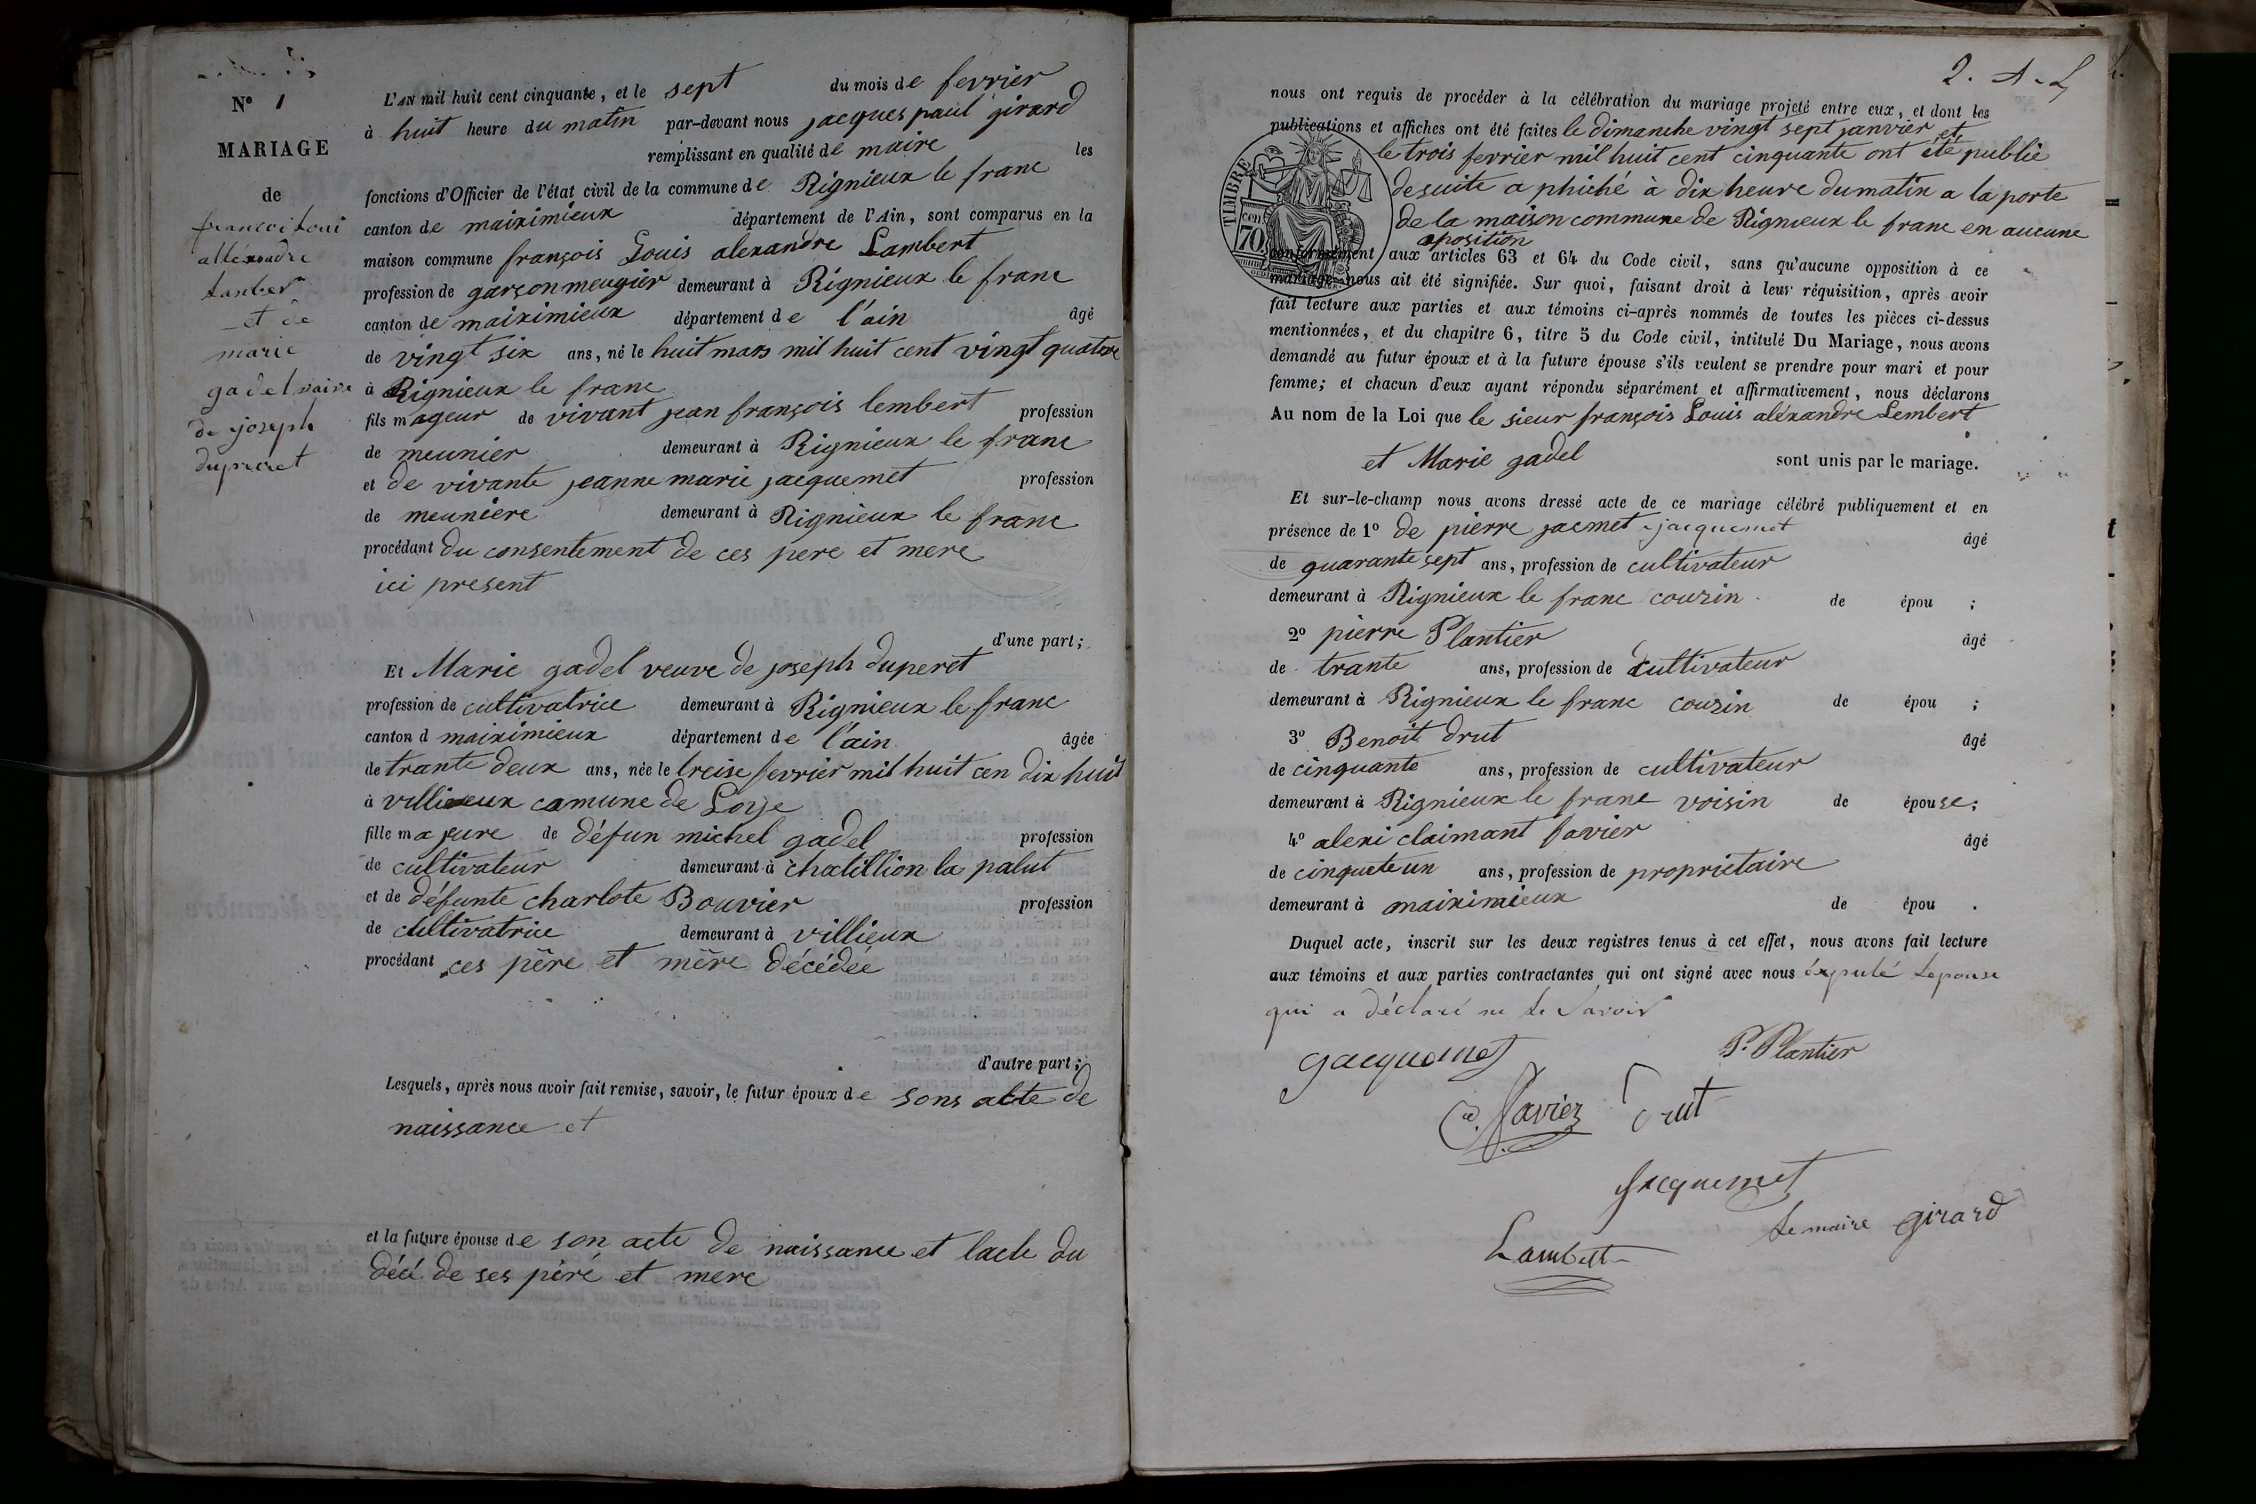 N° 1
MARIAGE
de
françoi Loui
alléxandre
Lamber
et de
marie
gadel vaive
de joseph
duperret
L'AN mil huit cent cinquante, et le sept du mois de fevrier
à huit heure du matin par-devant nous jacques paul girard
remplissant en qualité de maire les
fonctions d'Officier de l'état civil de la commune de Rignieux le franc
canton de maiximieux département de l'Ain, sont comparus en la
maison commune françois Louis alexandre Lambert
profession de garçon meugier demeurant à Rignieux le franc
canton de maiximieux département de l'ain âgé
de vingt six ans, né le huit mars mil huit cent vingt quatre
à Rignieux le franc
fils mageur de vivant jean françois lembert profession
de meunier demeurant à Rignieux le franc
et de vivante jeanne marie jacquemet profession
de meuniere demeurant à Rignieux le franc
procédant du consentement de ces pere et mere
ici present
d'une part;
Et Marie gadel veuve de joseph duperet
profession de cultivatrice demeurant à Rignieux le franc
canton d maiximieux département de l'ain âgée
de trante deux ans, née le treise fevrier mil huit cen dix huit
à villieux camune de Loye
fille majeure de défun michel gadel profession
de cultivateur demeurant à chatillion la palut
et de défunte charlote Bouvier profession
de cultivatrice demeurant à villieux
procédant ces père et mère décédée
d'autre part;
Lesquels, après nous avoir fait remise, savoir, le futur époux de sons acte de
naissance et
et la future épouse de son acte de naissance et lacte du
décé de ses péré et mere
2. A. L
nous ont requis de procéder à la célébration du mariage projeté entre eux, et dont les
publications et affiches ont été faites le dimanche vingt sept janvier et
le trois fevrier mil huit cent cinquante ont été publié
de suite a phiché à dix heure du matin a la porte
de la maison commune de Rignieux le franc en aucune
oposition
TIMBRE
cen
70
conformément aux articles 63 et 64 du Code civil, sans qu'aucune opposition à ce
mariage nous ait été signifiée. Sur quoi, faisant droit à leur réquisition, après avoir
fait lecture aux parties et aux témoins ci-après nommés de toutes les pièces ci-dessus
mentionnées, et du chapitre 6, titre 5 du Code civil, intitulé Du Mariage, nous avons
demandé au futur époux et à la future épouse s'ils veulent se prendre pour mari et pour
femme; et chacun d'eux ayant répondu séparément et affirmativement, nous déclarons
Au nom de la Loi que le sieur françois Louis aléxandre Lembert
et Marie gadel sont unis par le mariage.
Et sur-le-champ nous avons dressé acte de ce mariage célébré publiquement et en
présence de 1° de pierre jacmet jacquemet âgé
de quarante sept ans, profession de cultivateur
demeurant à Rignieux le franc couzin de épou ;
2° pierre Plantier âgé
de trante ans, profession de cultivateur
demeurant à Rignieux le franc couzin de épou ;
3° Benoit drut âgé
de cinquante ans, profession de cultivateur
demeurant à Rignieux le franc voisin de épouse;
4° alexi claimant favier âgé
de cinquete un ans, profession de propriétaire
demeurant à maiximieux de épou .
Duquel acte, inscrit sur les deux registres tenus à cet effet, nous avons fait lecture
aux témoins et aux parties contractantes qui ont signé avec nous éxpulé Lepouse
qui a déclaré ne le savoir
Jacquemet P. Plantier
a. favier Drut
Jacquemet
Le maire girard
Lambert